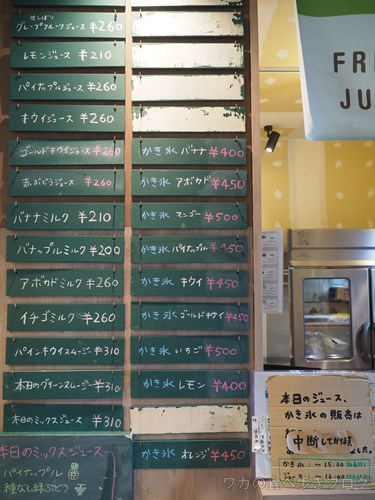 生しぼり
グレープフルーツジュース ¥260
レモンジュース ¥210
パイナップルジュース ¥260
キウイジュース ¥260
ゴールドキウイジュース ¥260
赤ぶどうジュース ¥260
バナナミルク ¥210
バナップルミルク ¥200
アボカドミルク ¥260
イチゴミルク ¥260
パインキウイスムージー ¥310
本日のグリーンスムージー ¥310
本日のミックスジュース ¥310
本日のミックスジュース
パイナップル
種なし緑ぶどう
かき氷 バナナ ¥400
かき氷 アボカド ¥450
かき氷 マンゴー ¥500
かき氷 パイナップル
かき氷 キウイ ¥450
かき氷 ゴールドキウイ ¥450
かき氷 いちご ¥500
かき氷 レモン ¥400
かき氷 オレンジ ¥450
FR
JU
本日のジュース、
かき氷の販売は
中断しております
かき氷 → 15:30
ジュース →